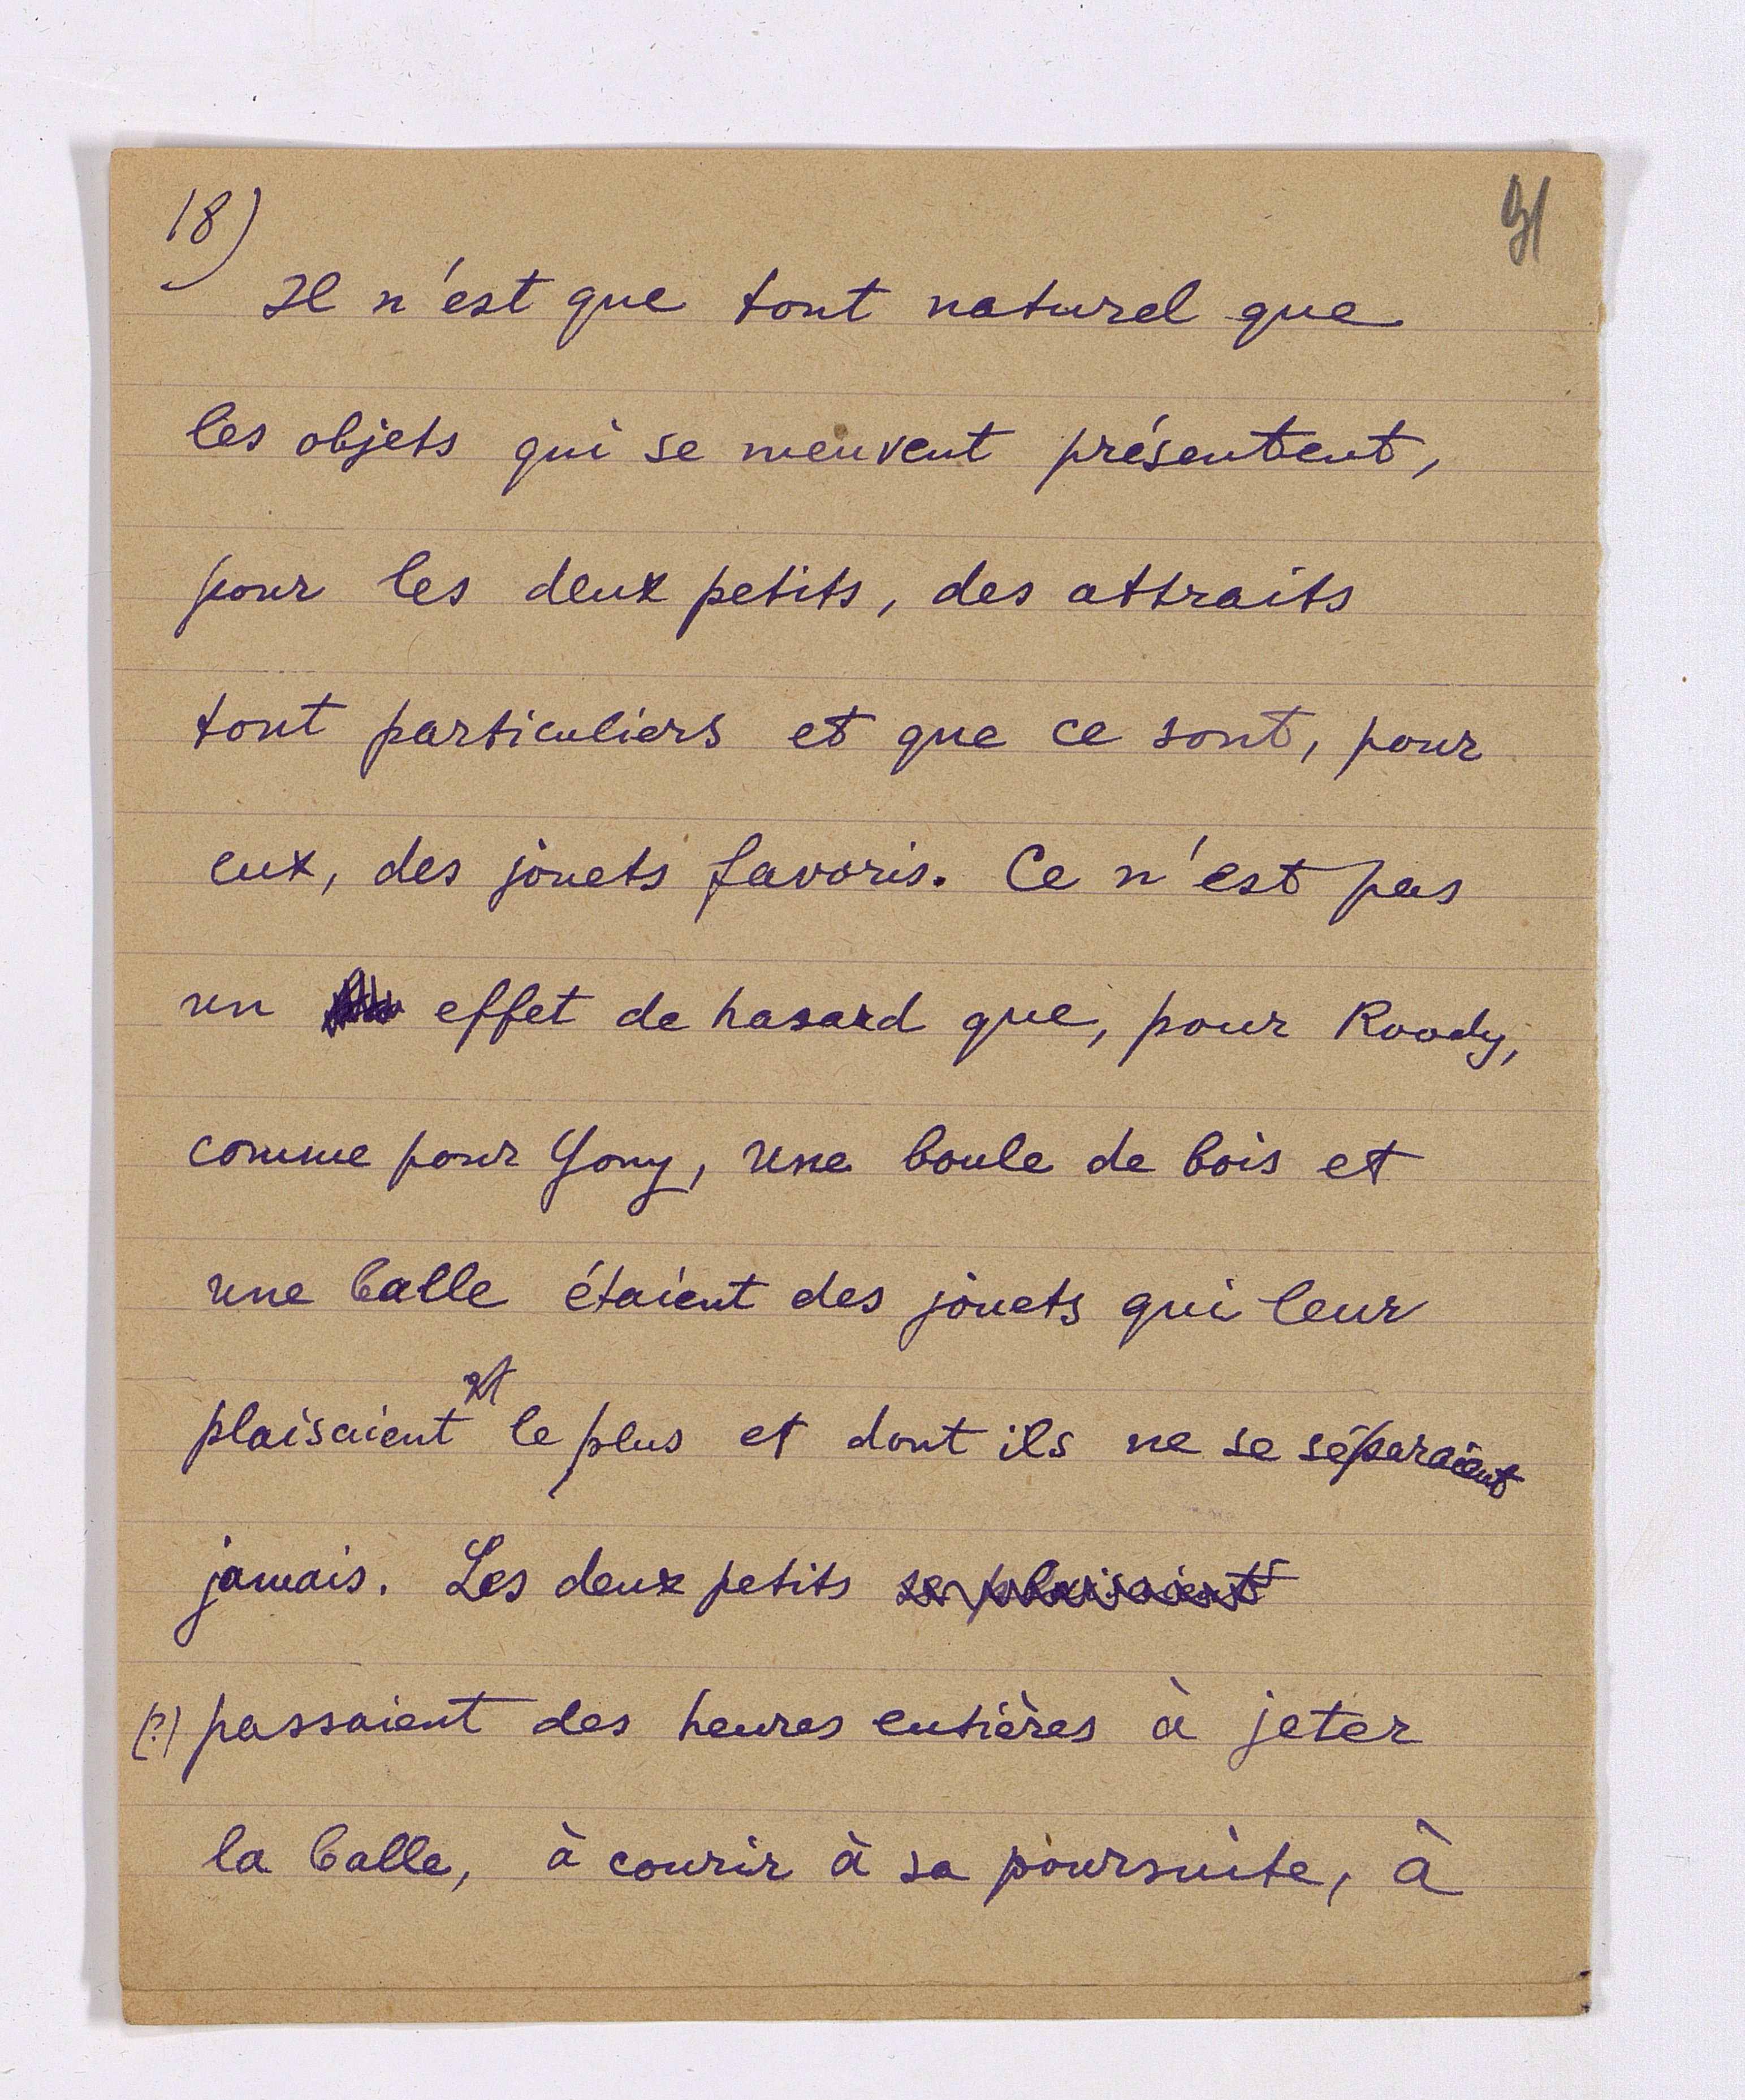 18)
91
Il n'est que tout naturel que
les objets qui se meuvent présentent,
pour les deux petits, des attraits
tout particuliers et que ce sont, pour
eux, des jouets favoris. Ce n'est pas
un effet de hasard que, pour Roody,
comme pour Yony, une boule de bois et
une balle étaient des jouets qui leur
plaisaient le plus et dont ils ne se séparaient
jamais. Les deux petits se plaisaient
(?) passaient des heures entières à jeter
la balle, à courir à sa poursuite, à